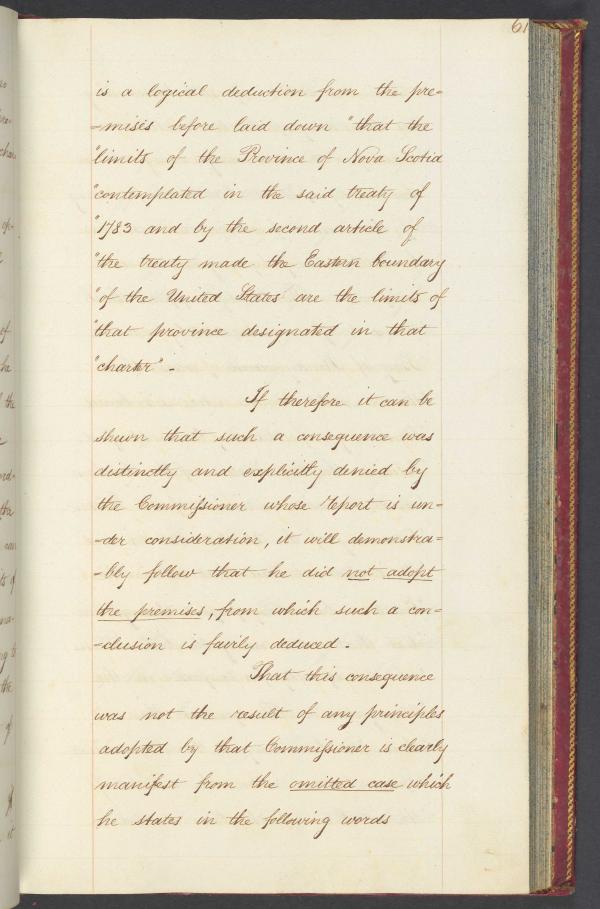 61
is a logical deduction from the pre=
=mises before laid down "that the
"limits of the Province of Nova Scotia
"contemplated in the said treaty of
"1783 and by the second article of
"the treaty made the Eastern boundary
"of the United States are the limits of
"that province designated in that
"charter" -
If therefore it can be
shewn that such a consequence was
distinctly and explicitly denied by
the Commissioner whose report is un=
=der consideration, it will demonstra=
=bly follow that he did not adopt
the premises, from which such a con=
=clusion is fairly deduced.
That this consequence
was not the result of any principles
adopted by that Commissioner is clearly
manifest from the omitted case which
he states in the following words